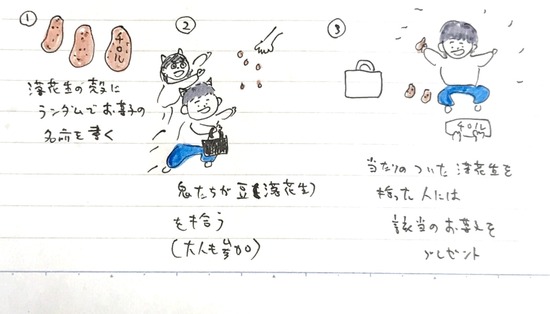 ①
チロル
落花生の殻に
ランダムでお菓子の
名前を書く
②
鬼たちが豆(落花生)
を拾う
(大人も参加)
③
チロル
当たりのついた落花生を
拾った人には
該当のお菓子を
プレゼント